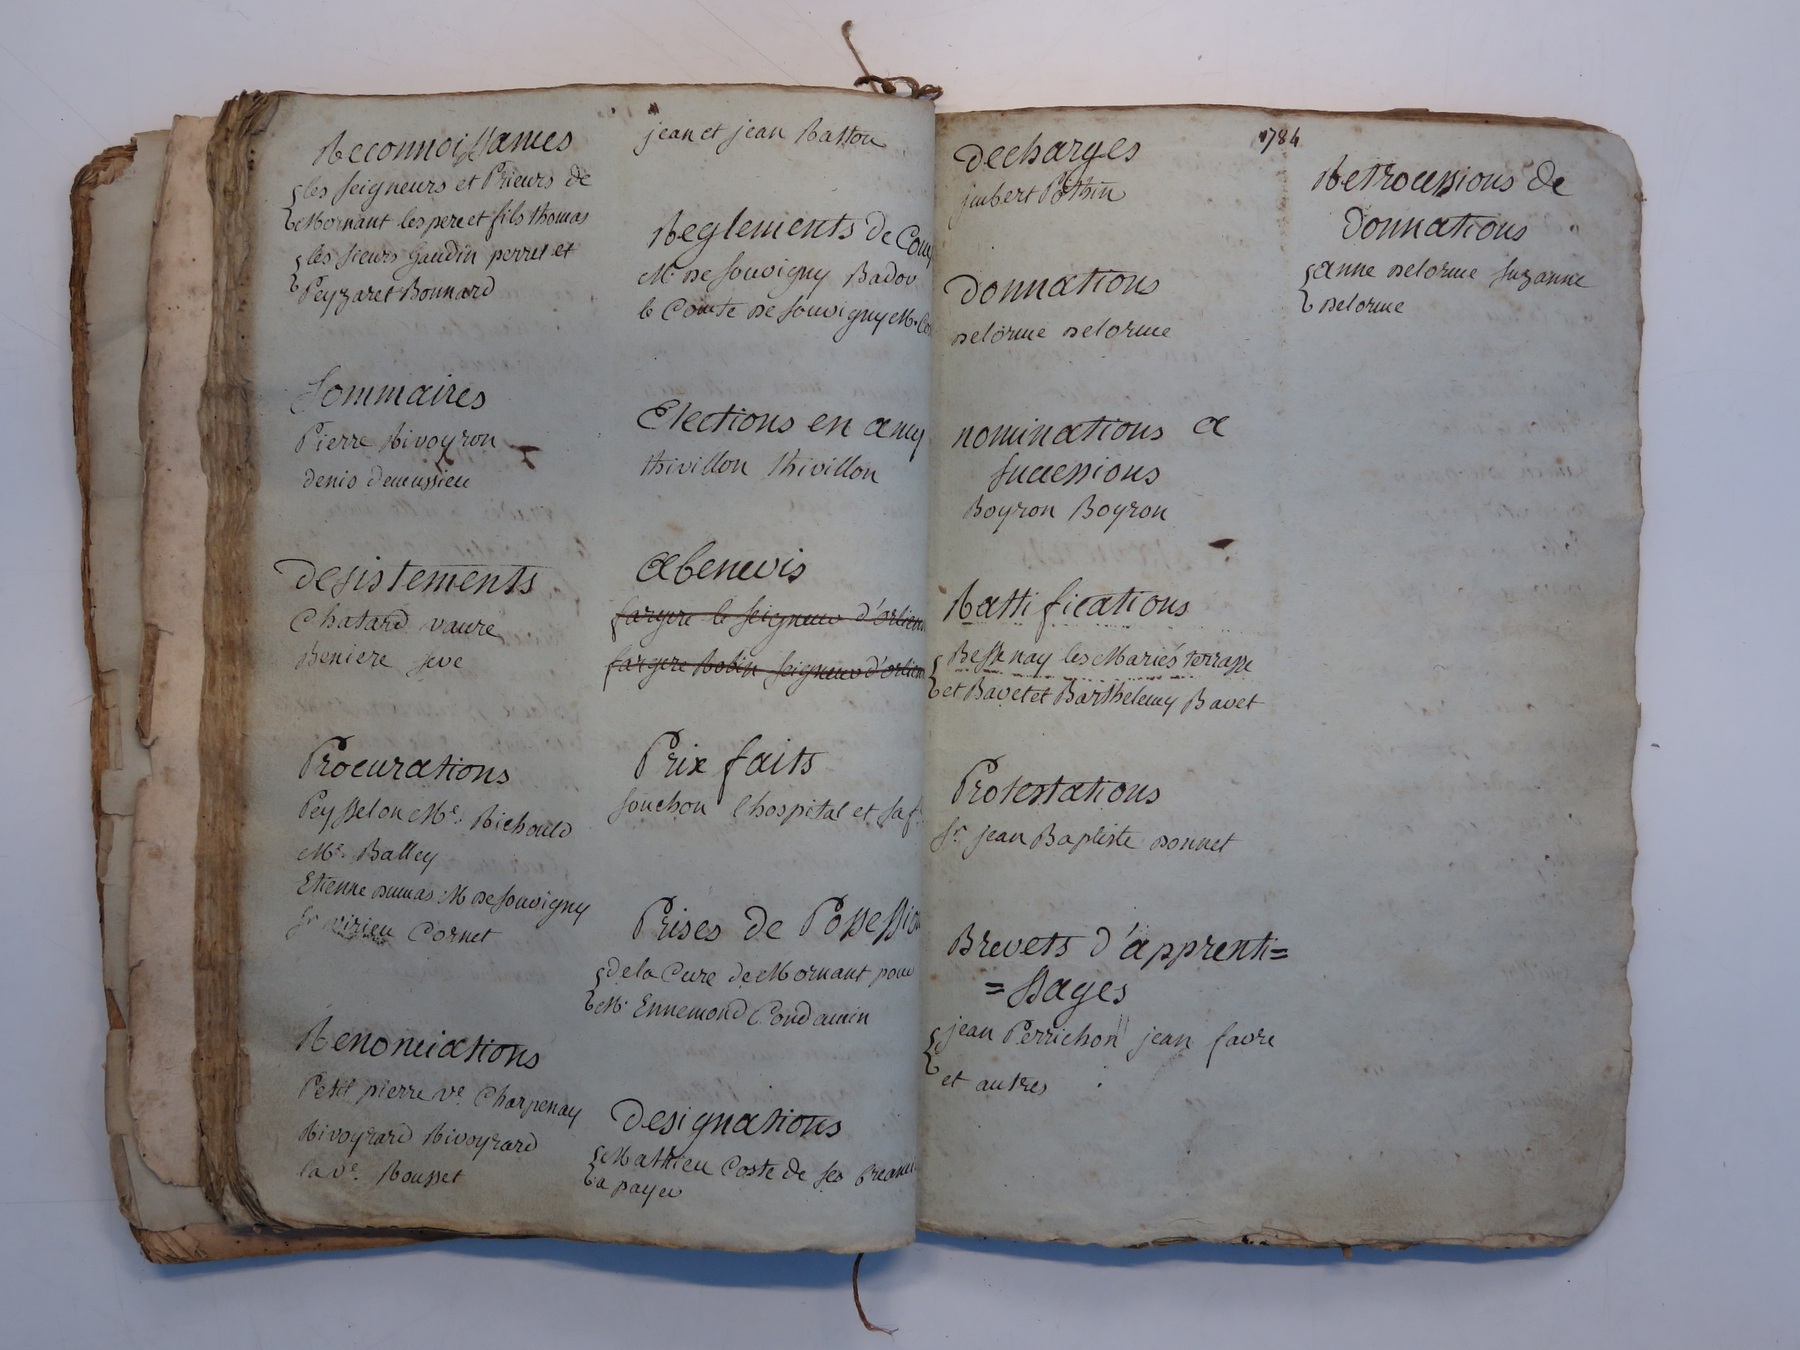 Reconnoissances
les seigneurs et Prieurs de
Mornant les pere et fils thomas
les sieurs Gaudin perret et
Peyzaret Bonnard
Sommaires
Pierre Rivoyron
denis demussieu
desistements
Chatard vaure
Beniere seve
Procurations
Peysselon Me. Richould
Me. Balley
Etienne dumas M de Souvigny
Sr virieu Cornet
Renonciations
Petit pierre ve. Charpenay
Rivoyrard Rivoyrard
la ve. Rousset
jean et jean Raston
Reglements de
Mr de Souvigny Badou
le Comte de Souvigny
Elections en amy
thivillon thivillon
abenevis
fargere le seigneur
fargere Robin seigneur
Prix faits
Souchon l'hospital et
Prises de
de la Cure de Mornant pour
Mr Ennemond Condamin
designations
Mathieu Coste de ses
a payer
1784
decharges
jmbert Pothin
donnations
delorme delorme
nominations a
successions
Boyron Boyron
Rattifications
Bessenay les Mariés terrasse
et Bavet et Barthelemy Bavet
Protestations
Sr. jean Baptiste donnet
Brevets d'apprenti=
=ssages
jean Perrichon jean favre
et autres
Retrocessions de
donnations
anne delorme Suzanne
delorme